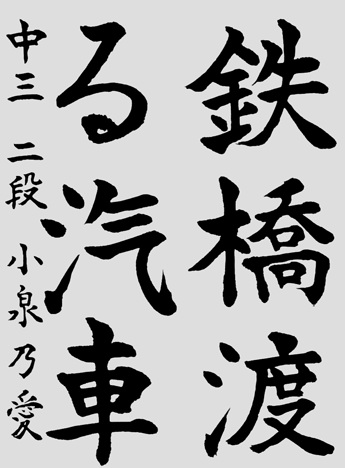 鉄橋渡
る汽車
中三 二段 小泉乃愛